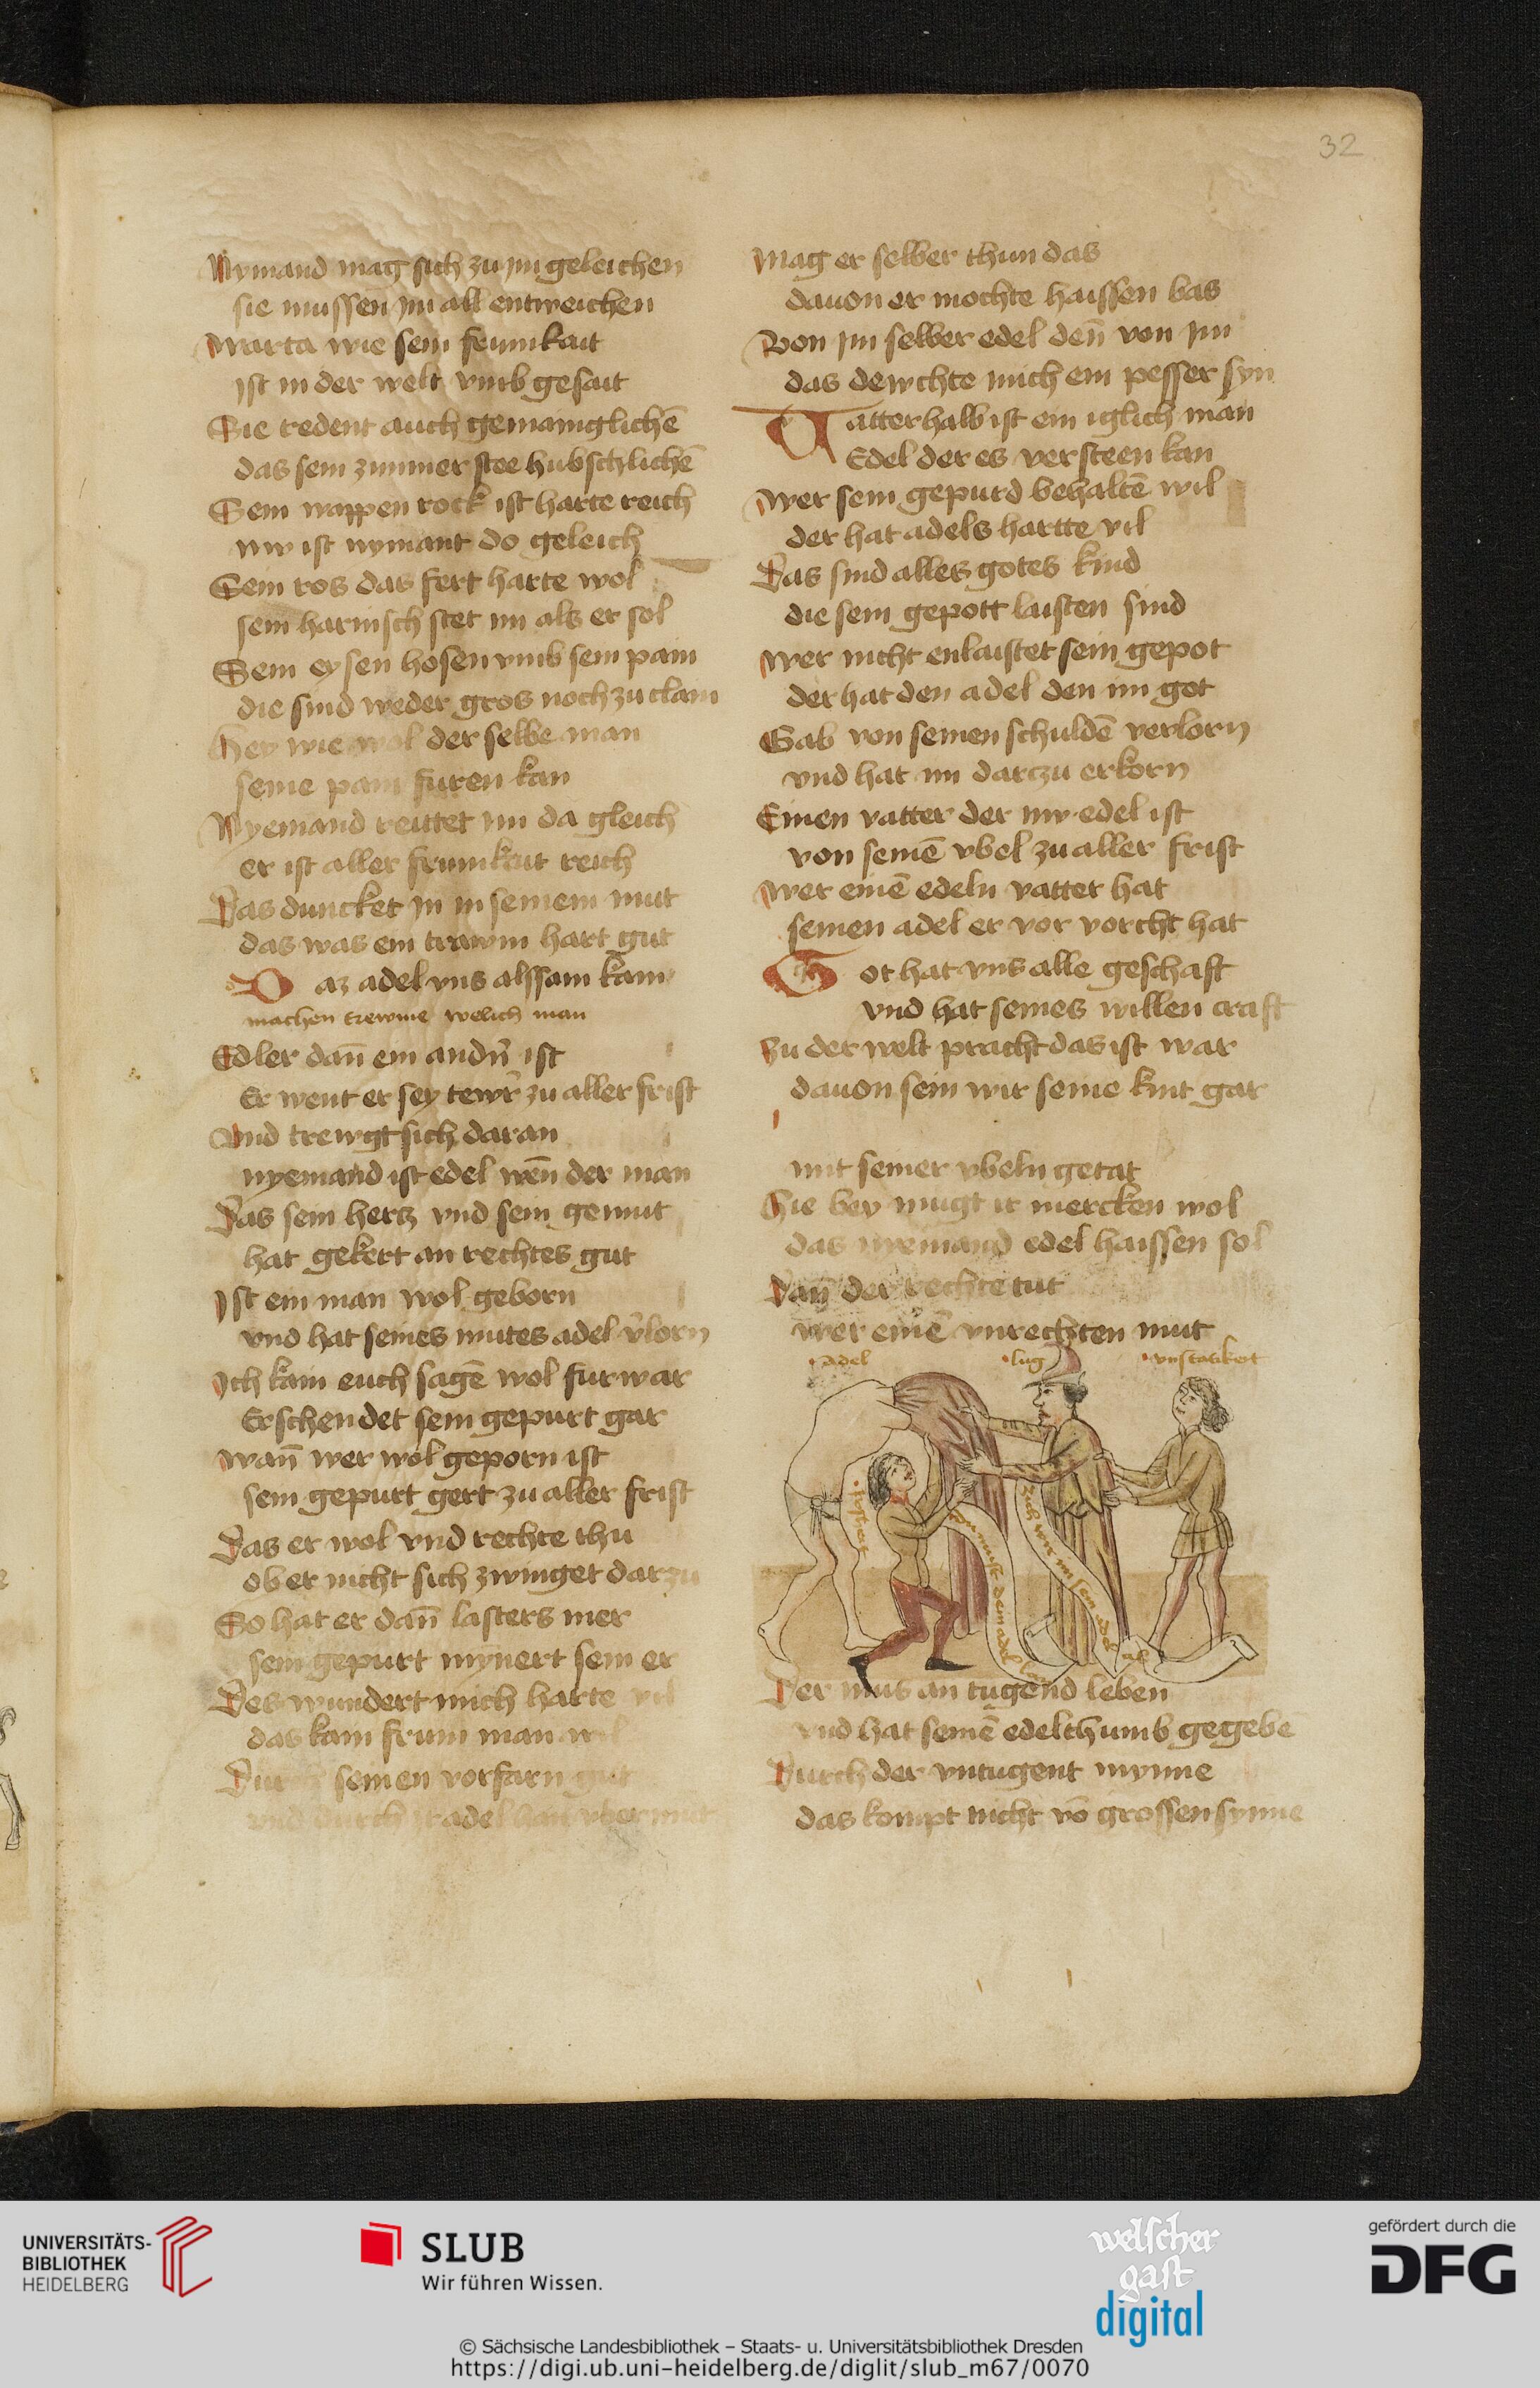 32
Nymand mag sich zu jm geleichen
sie mussen jm all entweichen
Warta wie sein frumkait
Ist in der welt vmb gesait
Sie redent auch gemainglichē
das sein zimmer stee hubschlichē
Sein wappen rock ist harte reich
nw ist nymant do geleich
Sein ros das fert harte wol
sein harnisch stet im als er sol
Sein eysen hosen vmb sein pain
die sind weder gros noch zu clain
Hey wie wol der selbe man
seine pain furen kan
Nyemand reittet im da gleich
er ist aller frumkait reich
Das duncket jn in seinem mut
das was ein trawm hart gut
Daz adel vns alssam kam
machen trewme welich man
Edler dan̄ ein andr̄ ist
Er went er sey tewr̄ zu aller frist
Vnd trewgt sich daran
nyemand ist edel wen̄ der man
Das sein hertz vnd sein gemut
hat gekert an rechtes gut
Ist ein man wol geborn
vnd hat seines mutes adel v̄lorn
Ich kain euch sagē wol furwar
Er schendet sein gepurt gar
wan̄ wer wol geporn ist
sein gepurt gert zu aller frist
Das er wol vnd rechte thu
ob er nicht sich zwinget darzu
So hat er dan̄ lasters mer
sein gepurt mynert sein er
Des wundert mich harte vil
das kain frum man wil
Durch seinen vorfarn gut
vnd durch jr adel han vbermut
Mag er selber thun das
dauon er mochte haissen bas
Von jm selber edel den̄ von jm
das dewchte mich ein pesser syn
Vatterhalb ist ein iglich man
Edel der es versteen kan
Wer sein gepurd behaltē wil
der hat adels hartte vil
Das sind alles gotes kind
die sein gepott laisten sind
Wer nicht enlaistet sein gepot
der hat den adel den im got
Gab von seinen schuldē verlorn
vnd hat im darczu erkorn
Einen vatter der nw edel ist
von seinē vbel zu aller frist
Wer einē edeln vatter hat
seinen adel er vor vorcht hat
Got hat vns alle geschaft
vnd hat seines willen craft
Zu der welt pracht das ist war
dauon sein wir seine kint gar
mit seiner vbeln getat
Hie bey mugt ir mercken wol
das nyemand edel haissen sol
Dan̄ der rechte tut
wer einē vnrechten mut
adel
lug
vnstatikeit
du must dem adel lan
zich wir im sein adel ab
Der mus an tugend leben
vnd hat seinē edelthumb gegebē
Durch der vntugent mynne
das kompt nicht vō grossen synne
UNIVERSITÄTS-
BIBLIOTHEK
HEIDELBERG
SLUB
Wir führen Wissen.
welscher
gast
digital
gefördert durch die
DFG
© Sächsische Landesbibliothek – Staats- u. Universitätsbibliothek Dresden
https://digi.ub.uni-heidelberg.de/diglit/slub_m67/0070